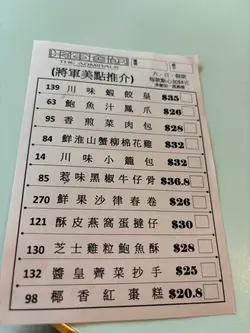 THE ADMIRALS
(將軍美點推介)
139 川味蝦餃皇 $35
63 鮑魚汁鳳爪 $26
95 香煎菜肉包 $28
84 鮮淮山蟹柳棉花雞 $32
14 川味小籠包 $32
85 惹味黑椒牛仔骨 $36.8
270 鮮果沙律春卷 $26
121 酥皮燕窩蛋撻仔 $30
130 芝士雞粒鮑魚酥 $28
132 醬皇薺菜抄手 $25
98 椰香紅棗糕 $20.8